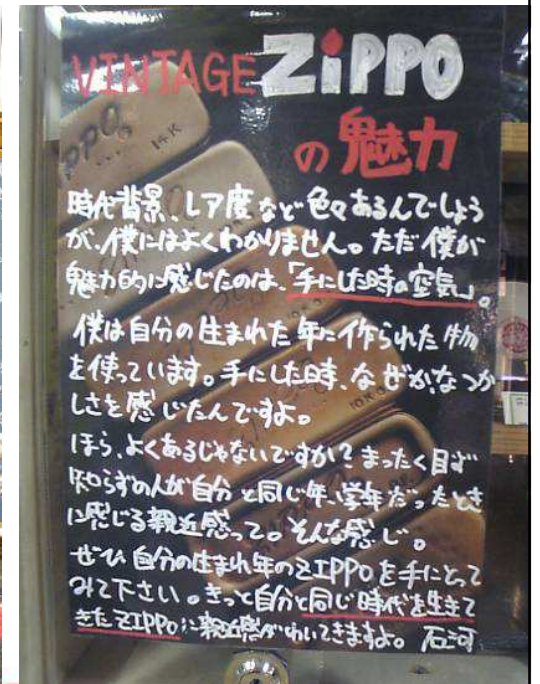 VINTAGE ZiPPO
の魅力
時代背景、レア度など色々あるんでしょう
が、僕にはよくわかりません。ただ僕が
魅力的に感じたのは、「手にした時の空気」。
僕は自分の生まれた年に作られた物
を使っています。手にした時、なぜか、なつか
しさを感じたんですよ。
ほら、よくあるじゃないですか?まったく見ず
知らずの人が自分と同じ年、学年だったとき
に感じる親近感って。そんな感じ。
ぜひ自分の生まれ年のZIPPOを手にとって
みて下さい。きっと自分と同じ時代を生きて
きたZIPPOに親近感がわいてきますよ。 石河
14K